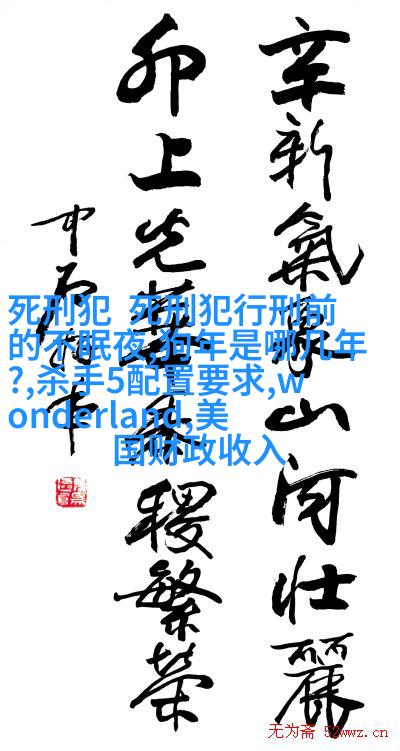 辛新氣象山河壯麗
卯上光華社稷繁榮
中石
死刑犯 死刑犯行刑前
的不眠夜,狗年是哪几年
?,杀手5配置要求,w
onderland,美
国财政收入
无为斋 52wwz.cn